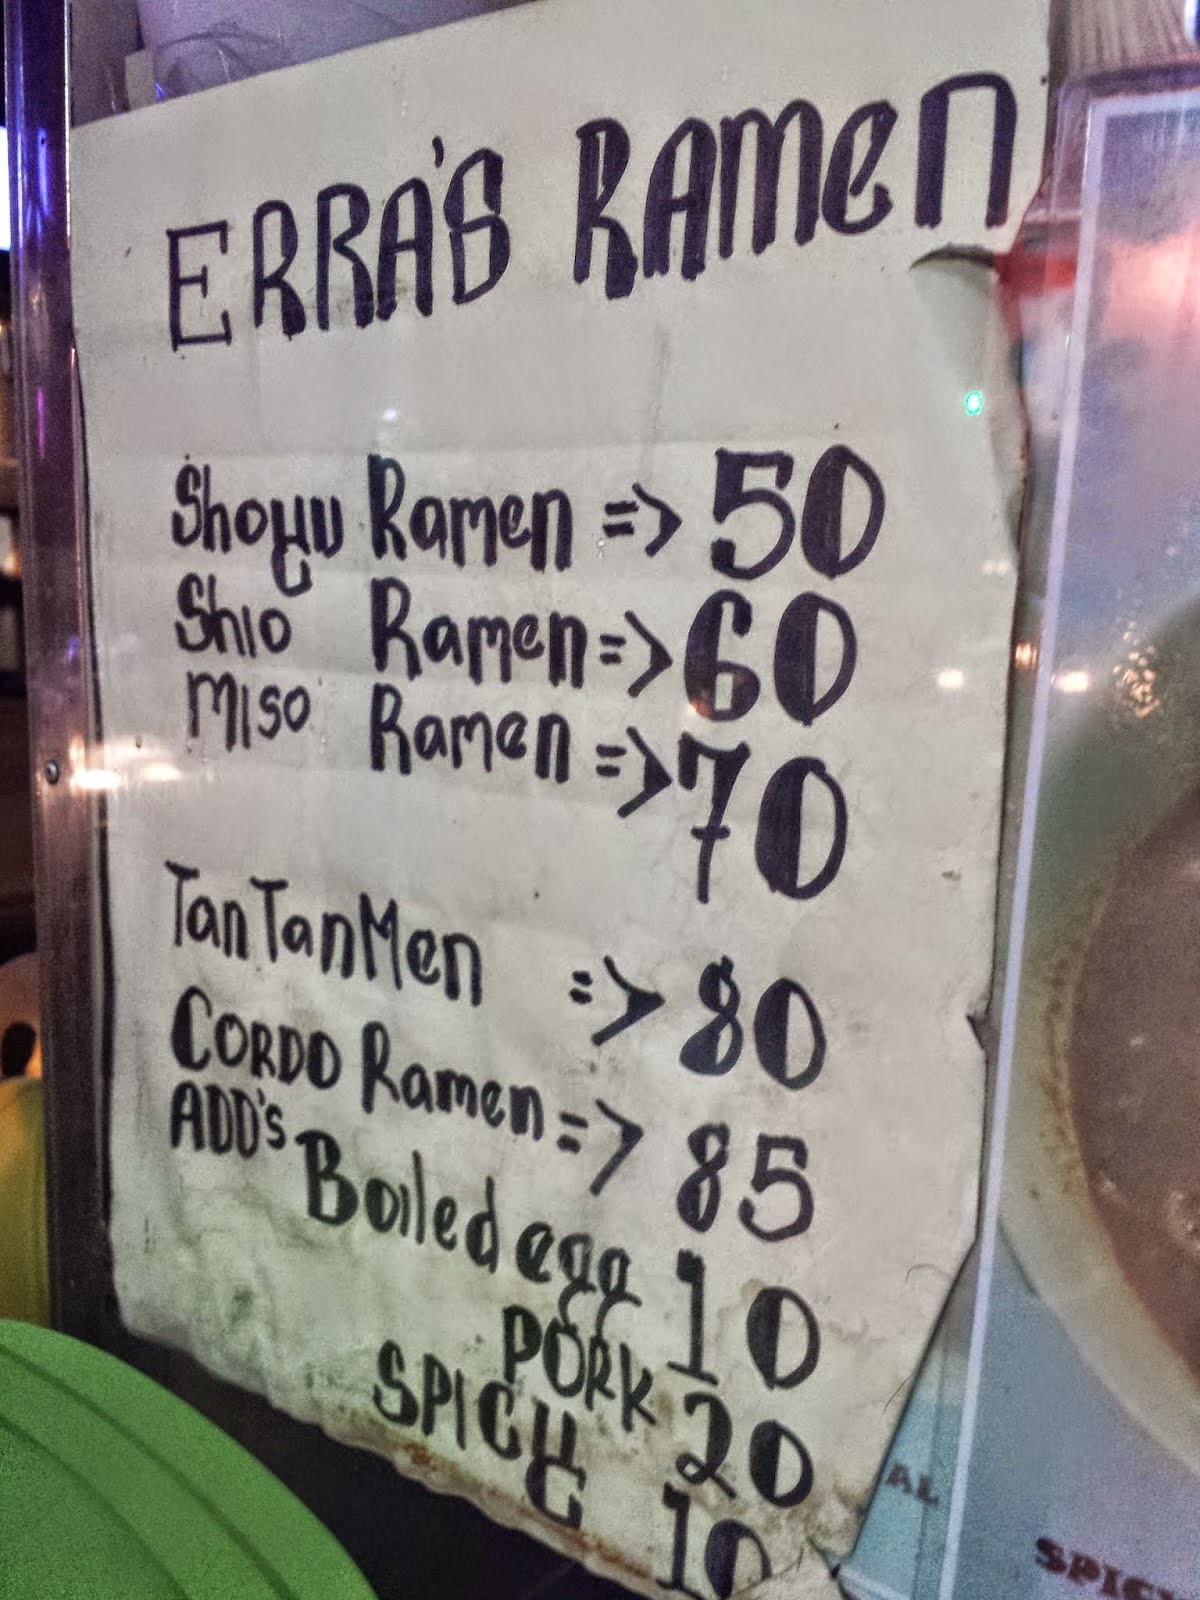 ERRA'S RAMEN
Shoyu Ramen => 50
Shio Ramen => 60
Miso Ramen => 70
TanTanMen => 80
CORDO Ramen => 85
ADD's Boiled egg 10
PORK 20
SPICY 10
AL
SPICY